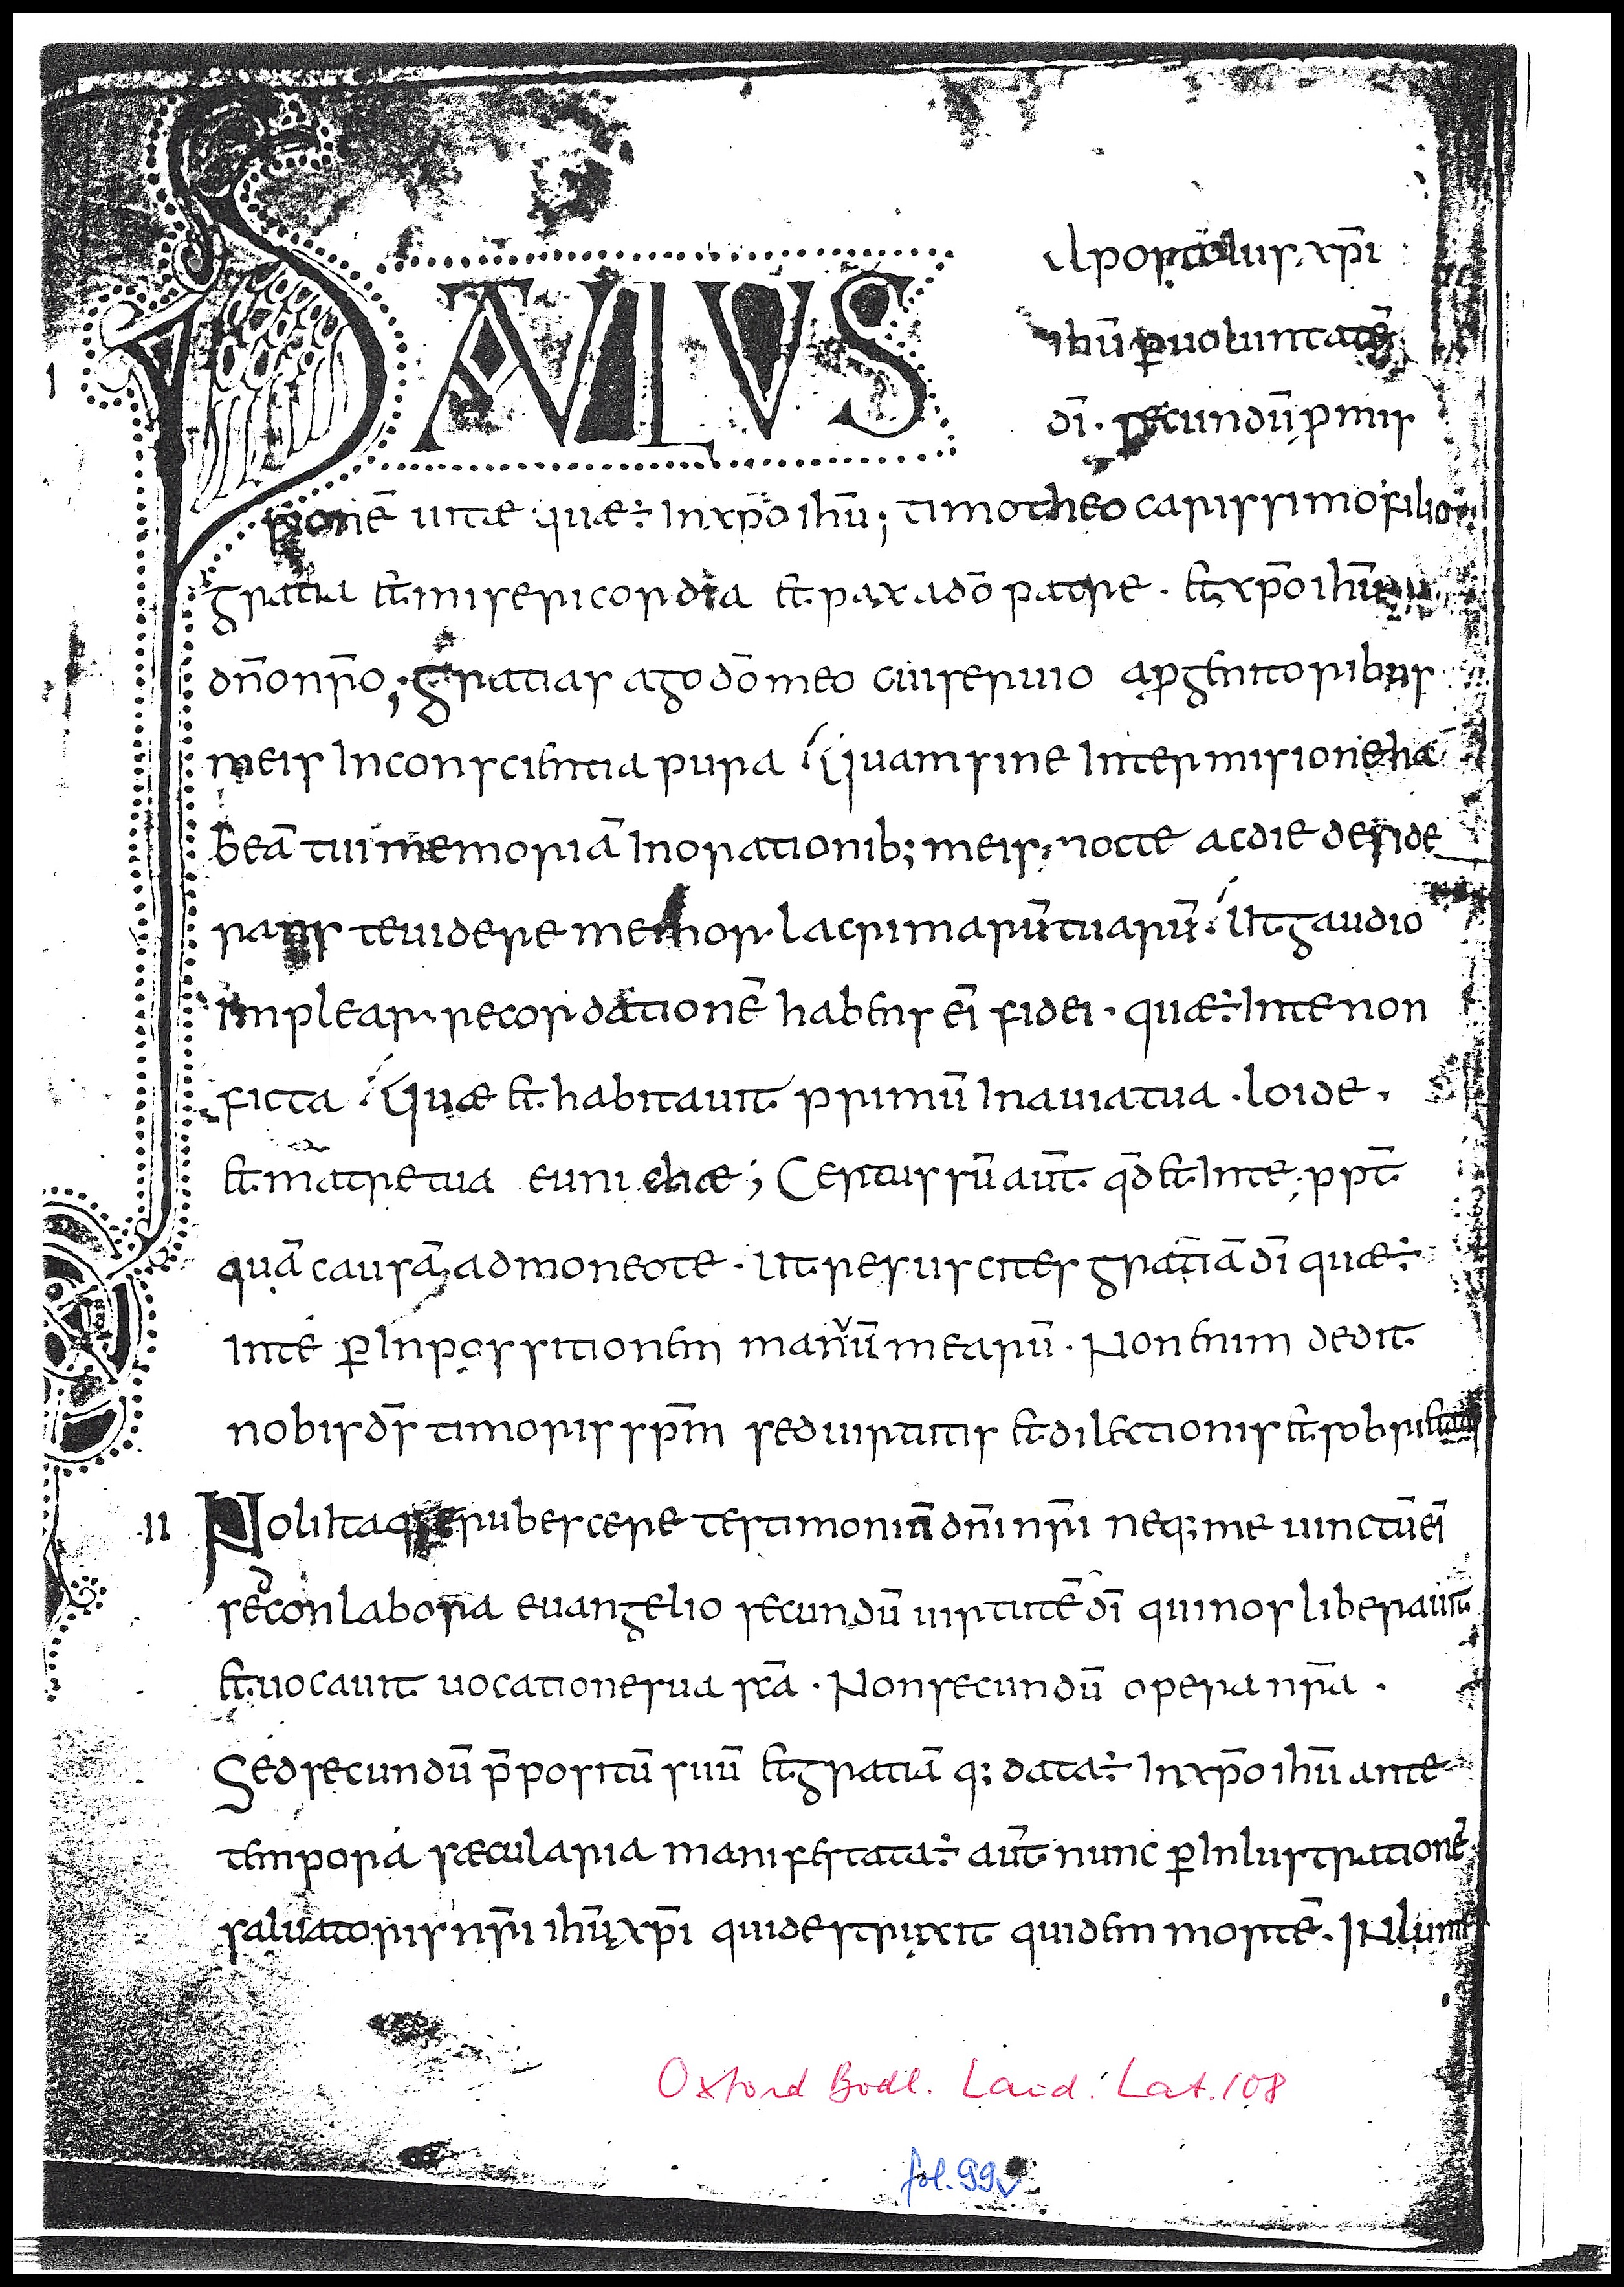 PAULUS apostolus xp̄i
ihū ꝑ uoluntatē
dī · secundū pmis
sionē uitae quae ÷ in xp̄o ihū ; timotheo carissimo filio
gratia et misericordia et pax a dō patre · et xp̄o ihū
dn̄o nr̄o ; gratias ago dō meo cui seruio a progenitoribus
meis in conscientia pura Quam sine intermisione ha
beā tui memoriā in orationib; meis · nocte ac die deside
rans te uidere memor lacrimarū tuarū · Ut gaudio
implear · recordationē habens eī fidei · quae ÷ in te non
ficta Quae et habitauit primū in auia tua · loide ·
et matre tua eunichae ; Certus sū aut̄ qd̄ et in te ; ppt̄
quā causā admoneo te · Ut resuscites gratiā dī quae ÷
in te ꝑ inpossitionem manuū mearū · Non enim dedit
nobis ds̄ timoris sp̄m sed uirtutis et dilectionis et sobrietatis
II Noli itaq; erubescere testimoniū dn̄i nr̄i neq; me uinctū eī
sed conlabora euangelio secundū uirtutē dī qui nos liberauit
et uocauit uocatione sua sc̄a · Non secundū opera nr̄a ·
Sed secundū p̄positū suū et gratiā q; data ÷ in xp̄o ihū ante
tempora saecularia manifestata ÷ aut̄ nunc ꝑ inlustrationē
saluatoris nr̄i ihū xp̄i qui destruxit quidem mortē · INlumi
Oxford Bodl. Laud. Lat. 108
fol. 99v